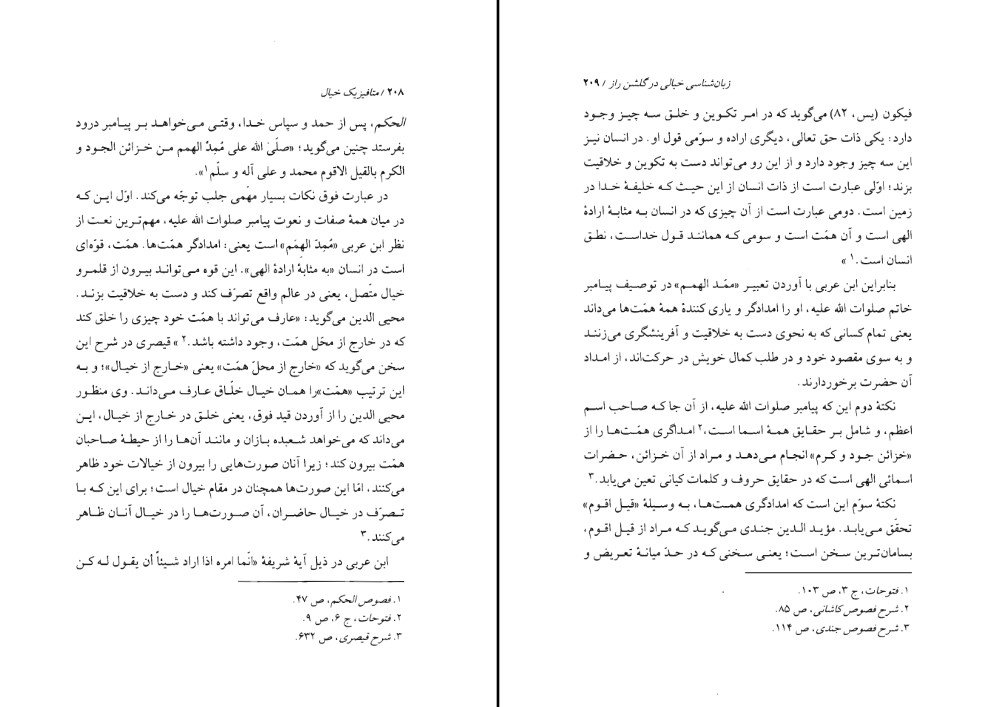 ۲۰۸ / متافیزیک خیال
الحکم، پس از حمد و سپاس خدا، وقتی می‌خواهد بر پیامبر درود
بفرستد چنین می‌گوید؛ «صلّیٰ الله علی مُمِدِّ الهمم من خزائن الجود و
الکرم بالقیل الاقوم محمد و علی آله و سلّم۱».
در عبارت فوق نکات بسیار مهّمی جلب توجّه می‌کند. اوّل این‌که
در میان همهٔ صفات و نعوت پیامبر صلوات الله علیه، مهم‌ترین نعت از
نظر ابن عربی «مُمِدّ الهِمَم» است یعنی: امدادگر همّت‌ها. همّت، قوّه‌ای
است در انسان «به مثابهٔ ارادهٔ الهی». این قوه می‌تواند بیرون از قلمرو
خیال متّصل، یعنی در عالم واقع تصرّف کند و دست به خلاقیت بزند.
محیی الدین می‌گوید: «عارف می‌تواند با همّت خود چیزی را خلق کند
که در خارج از محّل همّت، وجود داشته باشد.۲» قیصری در شرح این
سخن می‌گوید که «خارج از محلّ همّت» یعنی «خارج از خیال»؛ و به
این ترتیب «همّت» را همان خیال خلّاق عارف می‌داند. وی منظور
محیی الدین را از آوردن قید فوق، یعنی خلق در خارج از خیال، این
می‌داند که می‌خواهد شعبده بازان و مانند آن‌ها را از حیطهٔ صاحبان
همّت بیرون کند؛ زیرا آنان صورت‌هایی را بیرون از خیالات خود ظاهر
می‌کنند، امّا این صورت‌ها همچنان در مقام خیال است؛ برای این که با
تصرّف در خیال حاضران، آن صورت‌ها را در خیال آنان ظاهر
می‌کنند.۳
ابن عربی در ذیل آیهٔ شریفهٔ «انّما امره اذا اراد شیئاً أن یقول له کن
۱. فصوص الحکم، ص ۴۷.
۲. فتوحات، ج ۶، ص ۹.
۳. شرح قیصری، ص ۶۳۲.
زبان‌شناسی خیالی در گلشن راز / ۲۰۹
فیکون (یس، ۸۲) می‌گوید که در امر تکوین و خلق سه چیز وجود
دارد: یکی ذات حق تعالی، دیگری اراده و سوّمی قول او. در انسان نیز
این سه چیز وجود دارد و از این رو می‌تواند دست به تکوین و خلاقیت
بزند؛ اوّلی عبارت است از ذات انسان از این حیث که خلیفهٔ خدا در
زمین است. دومی عبارت است از آن چیزی که در انسان به مثابهٔ ارادهٔ
الهی است و آن همّت است و سومی که همانند قول خداست، نطق
انسان است.۱»
بنابراین ابن عربی با آوردن تعبیر «ممّد الهمم» در توصیف پیامبر
خاتم صلوات الله علیه، او را امدادگر و یاری کنندهٔ همهٔ همّت‌ها می‌داند
یعنی تمام کسانی که به نحوی دست به خلاقیت و آفرینشگری می‌زنند
و به سوی مقصود خود و در طلب کمال خویش در حرکت‌اند، از امداد
آن حضرت برخوردارند.
نکتهٔ دوم این که پیامبر صلوات الله علیه، از آن جا که صاحب اسم
اعظم، و شامل بر حقایق همهٔ اسما است،۲ امدادگری همّت‌ها را از
«خزائن جود و کرم» انجام می‌دهد و مراد از آن خزائن، حضرات
اسمائی الهی است که در حقایق حروف و کلمات کیانی تعین می‌یابد.۳
نکتهٔ سوّم این است که امدادگری همت‌ها، به وسیلهٔ «قیل اقوم»
تحقّق می‌یابد. مؤید الدین جندی می‌گوید که مراد از قیل اقوم،
بسامان‌ترین سخن است؛ یعنی سخنی که در حدّ میانهٔ تعریض و
۱. فتوحات، ج ۳، ص ۱۰۳.
۲. شرح فصوص کاشانی، ص ۸۵.
۳. شرح فصوص جندی، ص ۱۱۴.